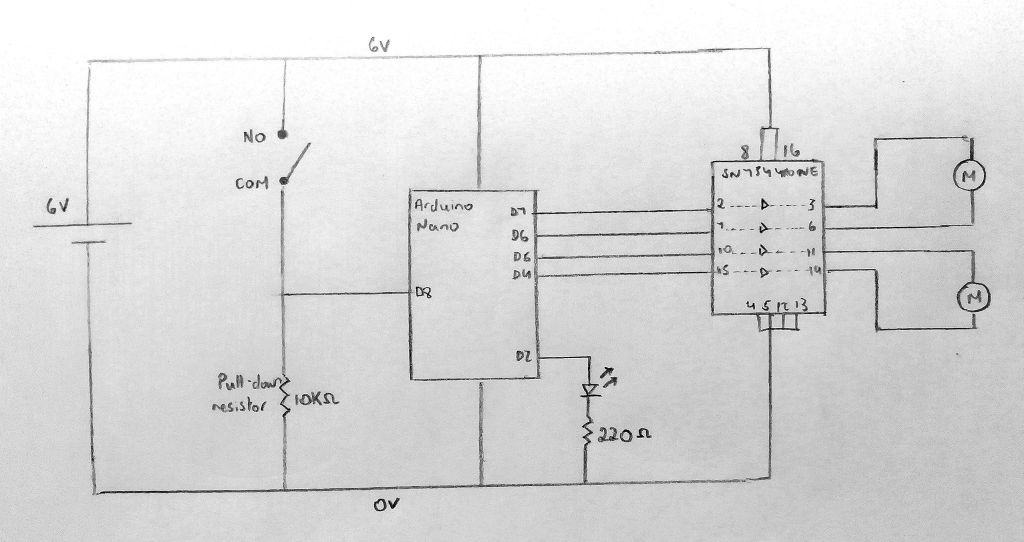 6V
NO
COM
6V
Arduino
Nano
D7
D6
D5
D4
D8
D2
8 16
SN754410NE
2 3
7 6
10 11
15 14
4 5 12 13
M
M
Pull-down
resistor
10KΩ
220Ω
0V